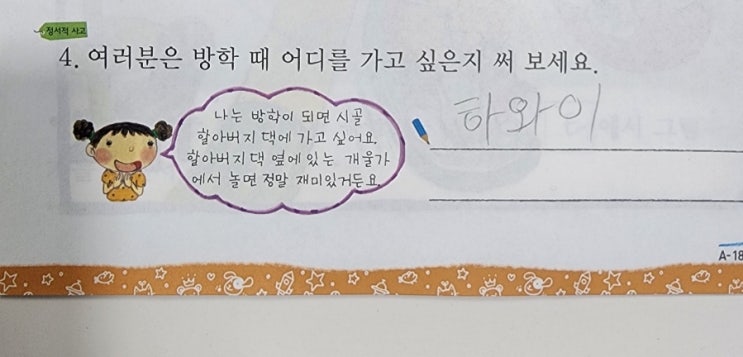 정서적 사고
4. 여러분은 방학 때 어디를 가고 싶은지 써 보세요.
나는 방학이 되면 시골
할아버지 댁에 가고 싶어요.
할아버지 댁 옆에 있는 개울가
에서 놀면 정말 재미있거든요
하와이
A-18